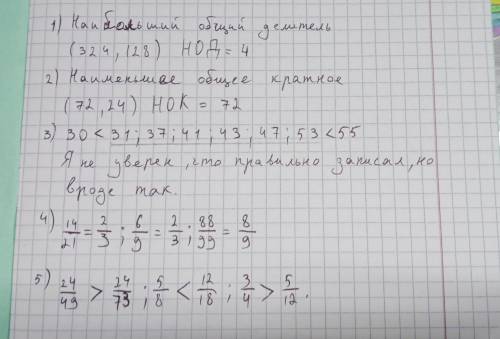 1) Наибольший общий делитель
(324, 128) НОД = 4
2) Наименьшее общее кратное
(72, 24) НОК = 72
3) 30 < 31; 37; 41; 43; 47; 53 < 55
Я не уверен, что правильно записал, но
вроде так.
4) 14/21 = 2/3; 6/9 = 2/3; 88/99 = 8/9
5) 24/49 > 24/73; 5/8 < 12/18; 3/4 > 5/12.